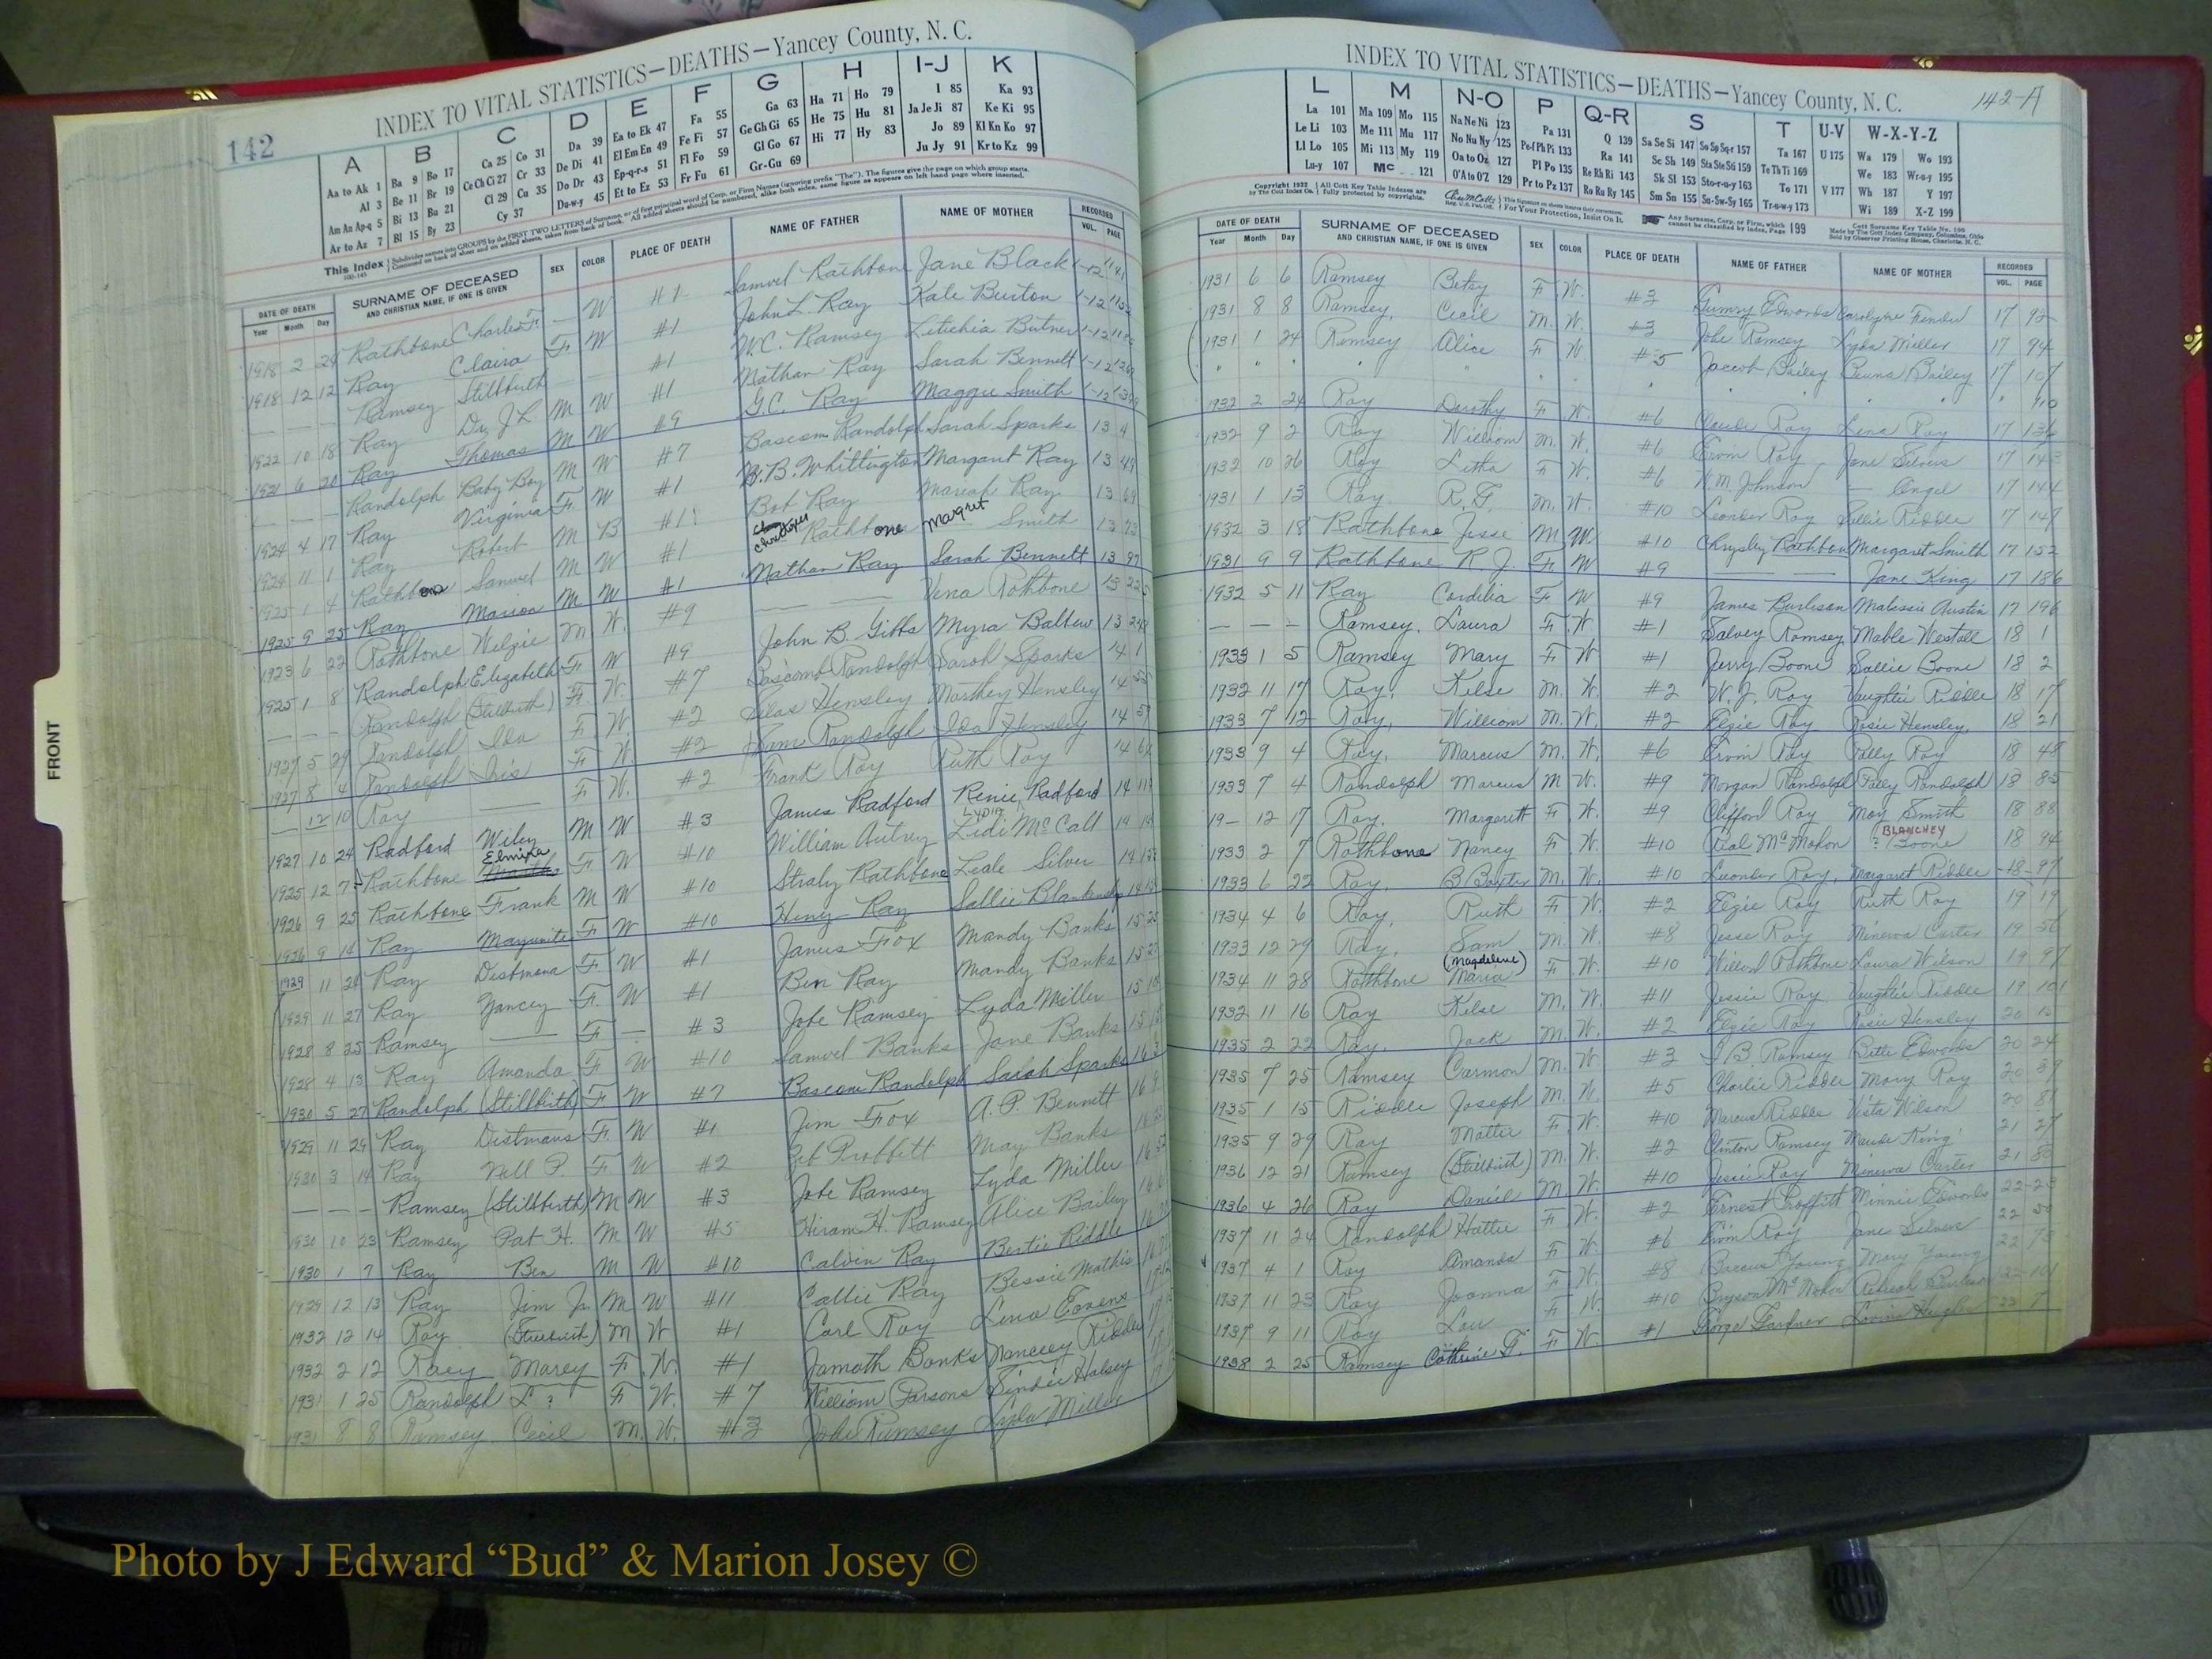 142
INDEX TO VITAL STATISTICS—DEATHS—Yancey County, N. C.
A B C D E F G H I-J K
Aa to Ak 1 Ba 9 Bo 17 Ca 25 Co 31 Da 39 Ea to Ek 47 Fa 55 Ga 63 Ha 71 Ho 79 I 85 Ka 93
Al 3 Be 11 Br 19 Ce Ch Ci 27 Cr 33 De Di 41 El Em En 49 Fe Fi 57 Ge Gh Gi 65 He 75 Hu 81 Ja Je Ji 87 Ke Ki 95
Am An Ap-q 5 Bi 13 Bu 21 Cl 29 Cu 35 Do Dr 43 Ep-q-r-s 51 Fl Fo 59 Gl Go 67 Hi 77 Hy 83 Jo 89 Kl Kn Ko 97
Ar to Az 7 Bl 15 By 23 Cy 37 Du-w-y 45 Et to Ez 53 Fr Fu 61 Gr-Gu 69 Ju Jy 91 Kr to Kz 99
This Index
DATE OF DEATH SURNAME OF DECEASED SEX COLOR PLACE OF DEATH NAME OF FATHER NAME OF MOTHER RECORDED
Year Month Day AND CHRISTIAN NAME, IF ONE IS GIVEN VOL. PAGE
1918 2 24 Rathbone Charles F. — W #1 Samuel Rathbone Jane Black 1-12
1918 12 12 Ray Claira F W #1 John L. Ray Kate Burton 1-12
— — — Ramsey Stillbirth — — #1 W.C. Ramsey Letichia Butner 1-12
1922 10 18 Ray Dr. J L M W #1 Nathan Ray Sarah Bennett 1-12
1921 6 20 Ray Thomas M W #9 G.C. Ray Maggie Smith 1-12
— — — Randolph Baby Boy M W #7 Bascom Randolph Sarah Sparks 13 4
1924 4 17 Ray Virginia F. W #1 B.B. Whittington Margaret Ray 13 49
1924 11 1 Ray Robert M B #11 Bob Ray Mariah Ray 13 69
1925 1 4 Rathbone Samuel M W #1 Christopher Rathbone Margret Smith 13 73
1925 9 25 Ray Marion M W #1 Nathan Ray Sarah Bennett 13 97
1923 6 22 Rathbone Welzie M. W. #9 — — Vena Rathbone 13
1925 1 8 Randolph Elizabeth F. W #9 John B. Gibbs Myra Ballew 13
— — — Randolph (Stillbirth) F. W. #7 Bascomb Randolph Sarah Sparks 14 1
1927 5 29 Randolph Ida F. W. #2 Silas Hensley Marthey Hensley 14 55
1927 8 4 Randolph Iris F W. #2 Sam Randolph Ida Hensley 14 57
— 12 10 Ray — F W. #2 Frank Ray Ruth Ray 14
1927 10 24 Radford Wiley M W #3 James Radford Renie Radford 14
1925 12 7 Rathbone Elmira F W #10 William Autrey Lidi McCall LYDIA 14
1926 9 25 Rathbone Frank M W #10 Straly Rathbone Leale Silver 14
1926 9 14 Ray Marguerite F W #10 Henry Ray Sallie Blankenship
1929 11 24 Ray Distmena F W #1 James Fox Mandy Banks 15 25
1929 11 27 Ray Yancey F. W #1 Ben Ray Mandy Banks 15 25
1928 8 25 Ramsey — F — #3 Jobe Ramsey Lyda Miller 15
1928 4 13 Ray Amanda F W #10 Samuel Banks Jane Banks 15
1930 5 27 Randolph (Stillbirth) F W #7 Bascom Randolph Sarah Sparks 16
1929 11 24 Ray Distmaus F. W #1 Jim Fox A.P. Bennett 16
1930 3 14 Ray Nell P. F W #2 Zeb Proffitt May Banks 16
— — — Ramsey (Stillbirth) M W #3 Jobe Ramsey Lyda Miller 16
1930 10 23 Ramsey Pat H. M W #5 Hiram H. Ramsey Alice Bailey
1930 1 7 Ray Ben M W #10 Calvin Ray Bertie Riddle
1929 12 13 Ray Jim Jr. M W #11 Callie Ray Bessie Mathis
1932 12 14 Ray (Stillbirth) M W #1 Carl Ray Lena Eovens
1932 2 12 Raey Marey F. W. #1 Jamoth Banks Nancey Riddle
1931 1 25 Randolph L ? F W. #7 William Parsons Sindie Halsey
1931 8 8 Ramsey Cecil M. W. #3 Jobe Ramsey Lyda Miller
INDEX TO VITAL STATISTICS—DEATHS—Yancey County, N. C.
142-A
L M N-O P Q-R S T U-V W-X-Y-Z
La 101 Ma 109 Mo 115 Na Ne Ni 123 Pa 131 Q 139 Sa Se Si 147 So Sp Sq-r 157 Ta 167 U 175 Wa 179 Wo 193
Le Li 103 Me 111 Mu 117 No Nu Ny 125 Pe-f Ph Pi 133 Ra 141 Sc Sh 149 Sta Ste Sti 159 Te Th Ti 169 We 183 Wr-u-y 195
Ll Lo 105 Mi 113 My 119 Oa to Oz 127 Pl Po 135 Re Rh Ri 143 Sk Sl 153 Sto-r-u-y 163 To 171 V 177 Wh 187 Y 197
Lu-y 107 Mc 121 O'A to O'Z 129 Pr to Pz 137 Ro Ru Ry 145 Sm Sn 155 Su-Sw-Sy 165 Tr-u-w-y 173 Wi 189 X-Z 199
Copyright 1922 by The Cott Index Co. All Cott Key Table Indexes are fully protected by copyrights. For Your Protection, Insist On It. Any Surname, Corp. or Firm, which cannot be classified by Index, Page 199
DATE OF DEATH SURNAME OF DECEASED SEX COLOR PLACE OF DEATH NAME OF FATHER NAME OF MOTHER RECORDED
Year Month Day AND CHRISTIAN NAME, IF ONE IS GIVEN VOL. PAGE
1931 6 6 Ramsey Betsy F W. #3 Edwards Carolyne 17 92
1931 8 8 Ramsey, Cecil M. W. #3 Jobe Ramsey Lyda Miller 17 94
1931 1 24 Ramsey Alice F W. #5 Jacob Bailey Bailey 17 107
" " " " " " " " " " " 110
1932 2 24 Ray Dorothy F. W. #6 Claude Ray Lena Ray 17 136
1932 9 2 Ray William M. W. #6 Ervin Ray Jane Silvers 17
1932 10 26 Ray Letha F W. #6 W.M. Johnson — Angel 17 144
1931 1 13 Ray R.F. M. W. #10 Leander Ray Sallie Riddle 17 149
1932 3 18 Rathbone Jesse M W. #10 Chrysley Rathbon Margaret Smith 17 152
1931 9 9 Rathbone R J. F. W #9 — — Jane King 17 186
1932 5 11 Ray Cordilia F W #9 James Burlison Malissie Austin 17 196
— — — Ramsey, Laura F. W #1 Salvey Ramsey Mable Westall 18 1
1933 1 5 Ramsey Mary F W #1 Jerry Boone Sallie Boone 18 2
1932 11 17 Ray, Kelse M. W. #2 W.J. Ray Vaughtie Riddle 18 17
1933 7 12 Ray, William M. W. #2 Elzie Ray Rosie Hensley, 18 21
1933 9 4 Ray, Marcus M. W. #6 Ervin Ray Polly Ray 18 48
1933 7 4 Randolph Marcus M W. #9 Morgan Randolph Polly Randolph 18 85
19— 12 17 Ray, Margarett F. W. #9 Clifford Ray May Smith 18 88
1933 2 7 Rathbone Nancy F W. #10 McMahon ? Boone BLANCHEY 18 94
1933 6 22 Ray, B Baxter M. W. #10 Leonder Ray, Margaret Riddle 18 97
1934 4 6 Ray, Ruth F W. #2 Elzie Ray Ruth Ray 19 19
1933 12 29 Ray, Sam M. W. #8 Jesse Ray Minerva Carter 19 56
1934 11 28 Rathbone Maria (Magdelene) F W. #10 Willard Rathbone Laura Wilson 19 97
1932 11 16 Ray Kelse M. W. #11 Jessie Ray Vaughtie Riddle 19 101
1935 2 22 Ray, Jack M. W. #2 Elzie Ray Rosie Hensley 20
1935 7 25 Ramsey Carmon M. W. #3 J B. Ramsey Bettie Edwards 20 24
1935 1 15 Riddle Joseph M. W. #5 Charlie Riddle Mary Ray 20 39
1935 9 29 Ray Mattie F W. #10 Marcus Riddle Vista Wilson 20 81
1936 12 21 Ramsey (Stillbirth) M. W. #2 Clinton Ramsey Maude King 21 27
1936 4 26 Ray Daniel M W. #10 Jessie Ray Minerva Carter 21 80
1937 11 24 Randolph Hattie F W. #2 Ernest Proffitt Minnie Edwards 22-23
1937 4 1 Ray Amanda F W. #6 Ervin Ray Jane Silvers 22 50
1937 11 23 Ray Joanna F W. #8 Young Mary Young 22
1937 9 11 Ray Lou F W. #10 Bryson McMahon 22-101
1938 2 25 Ramsey Cothrine F. F W. #1 George Gardner 23 7
FRONT
Photo by J Edward “Bud” & Marion Josey ©